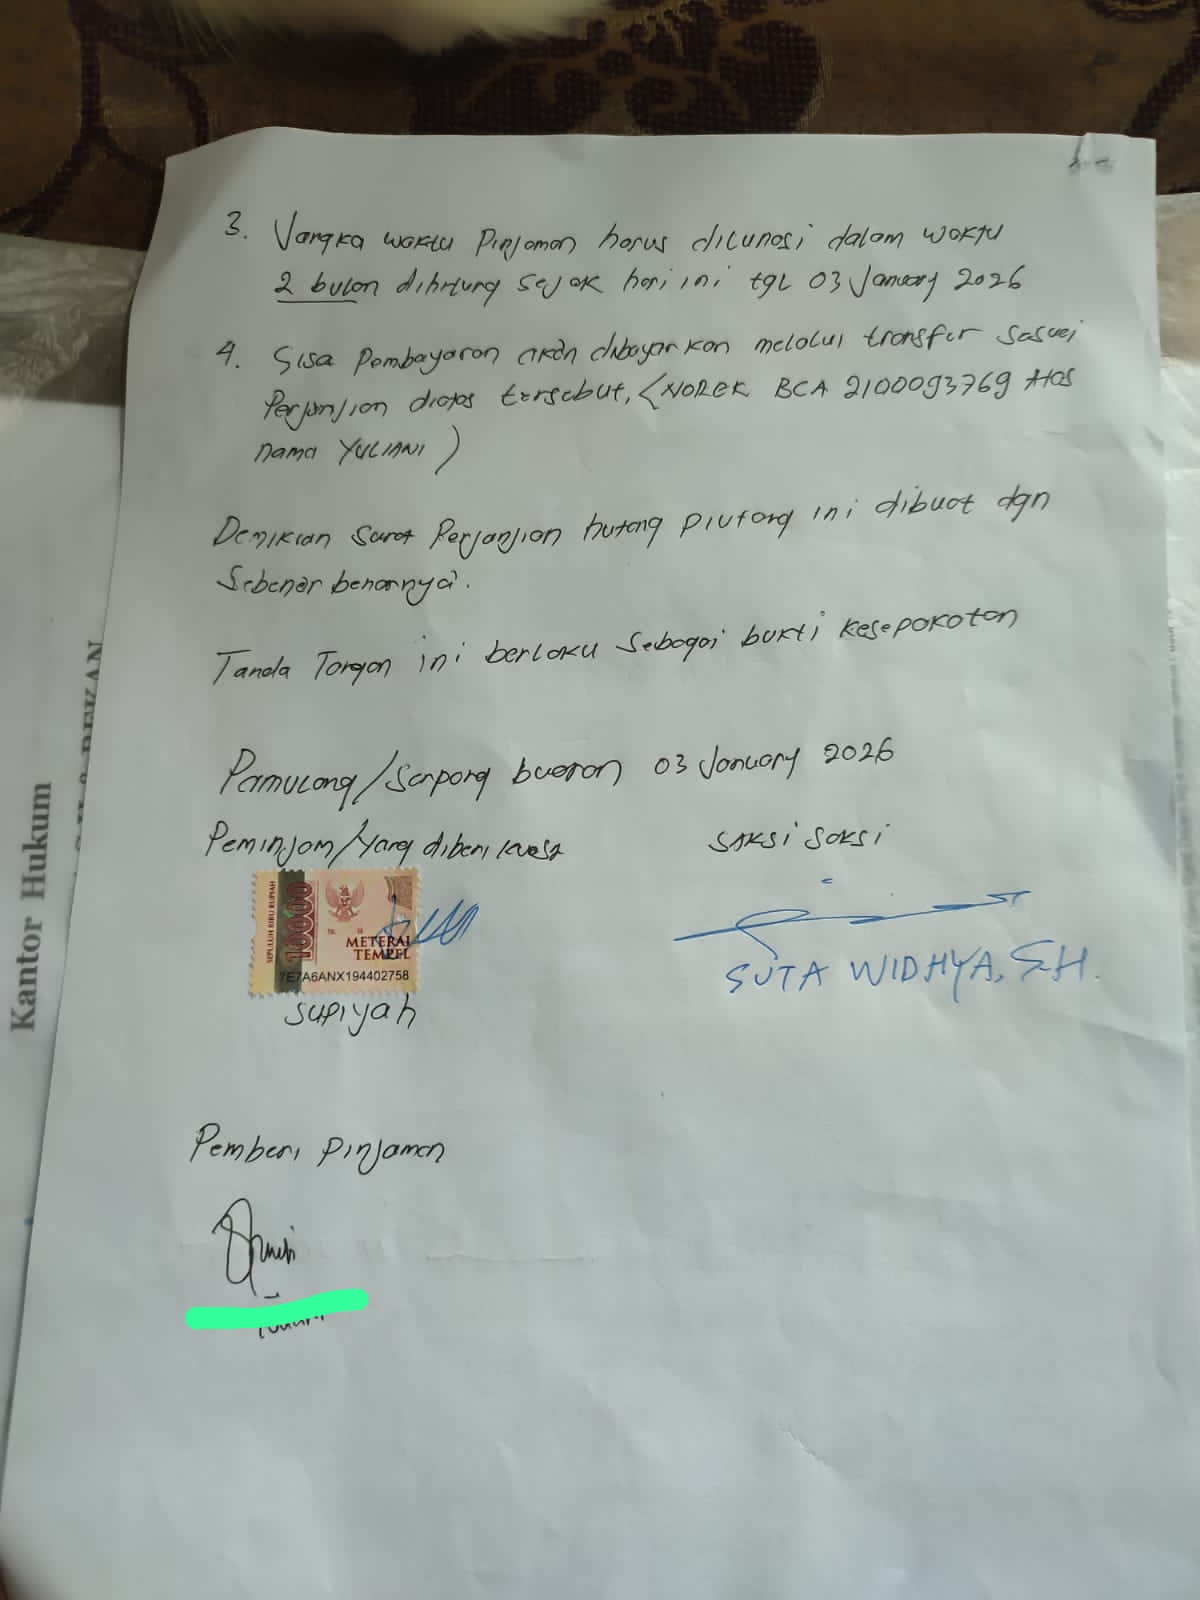 3. Jangka waktu Pinjaman harus dilunasi dalam waktu
2 bulan dihitung sejak hari ini tgl 03 January 2026
4. Sisa Pembayaran akan dibayarkan melalui transfer sesuai
Perjanjian diatas tersebut, (NOREK BCA 2100093769 Atas
nama YULIANI)
Demikian Surat Perjanjian hutang piutang ini dibuat dgn
Sebenar benarnya.
Tanda Tangan ini berlaku Sebagai bukti kesepakatan
Pamulang/Serpong buaran 03 January 2026
Peminjam/Yang diberi kuasa
SAKSI SAKSI
SEPULUH RIBU RUPIAH
10000
METERAI
TEMPEL
7E7A6ANX194402758
SUPIYAH
SUTA WIDHYA, S.H.
Pemberi Pinjaman
Kantor Hukum
S.H & REKAN